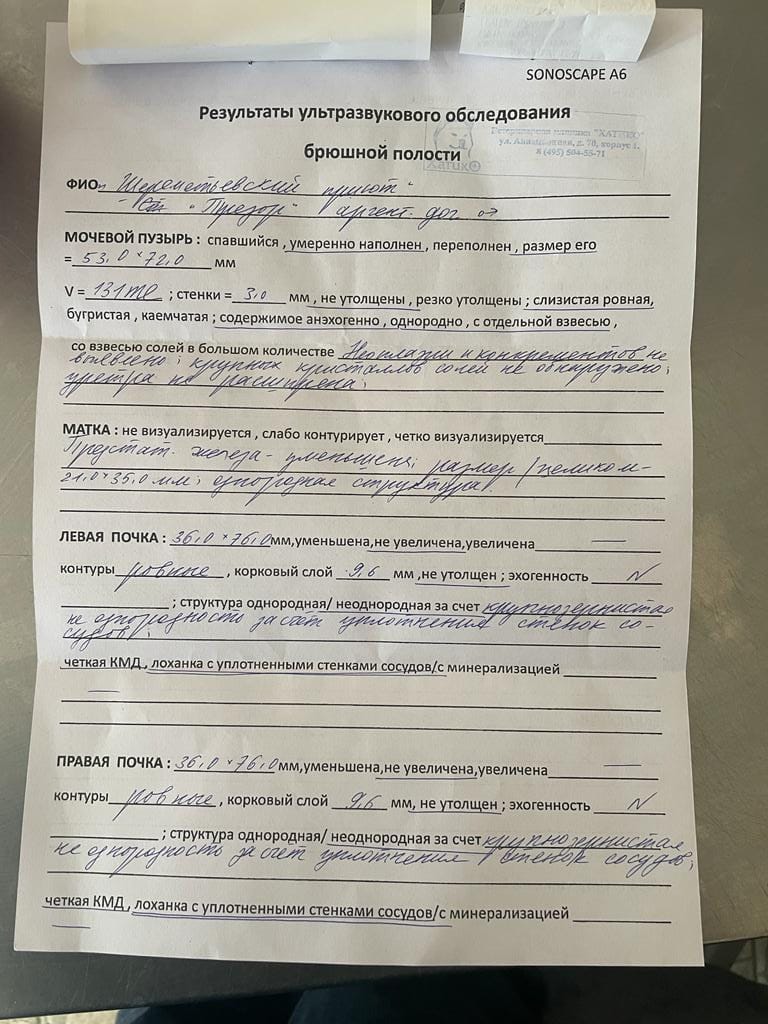 SONOSCAPE A6
Результаты ультразвукового обследования
брюшной полости
Ветеринарная клиника "ХАТИКО"
ул. Авиационная, д. 70, корпус 1.
8 (495) 504-55-71
ФИО Шереметьевский приют
"Трезор" аргент. дог
МОЧЕВОЙ ПУЗЫРЬ : спавшийся , умеренно наполнен , переполнен , размер его
= 53,0 × 72,0 мм
V = 131 ml ; стенки = 3,0 мм , не утолщены , резко утолщены ; слизистая ровная,
бугристая , каемчатая ; содержимое анэхогенно , однородно , с отдельной взвесью ,
со взвесью солей в большом количестве Неоплазии и конкрементов не
выявлено ; крупных кристаллов солей не обнаружено ;
уретра не расширена ;
МАТКА : не визуализируется , слабо контурирует , четко визуализируется
Предстат. железа - уменьшен; размер /целиком-
21,0 × 35,0 мм ; однородная структура .
ЛЕВАЯ ПОЧКА : 36,0 × 76,0 мм,уменьшена,не увеличена,увеличена —
контуры ровные , корковый слой 9,6 мм ,не утолщен ; эхогенность N
; структура однородная/ неоднородная за счет крупнозернистая
не однородность за счёт уплотнения стенок со-
судов .
четкая КМД , лоханка с уплотненными стенками сосудов/с минерализацией
—
ПРАВАЯ ПОЧКА : 36,0 × 76,0 мм,уменьшена,не увеличена,увеличена —
контуры ровные , корковый слой 9,6 мм, не утолщен ; эхогенность N
; структура однородная/ неоднородная за счет крупнозернистая
не однородность за счет уплотнения стенок сосудов ;
четкая КМД , лоханка с уплотненными стенками сосудов/с минерализацией
—